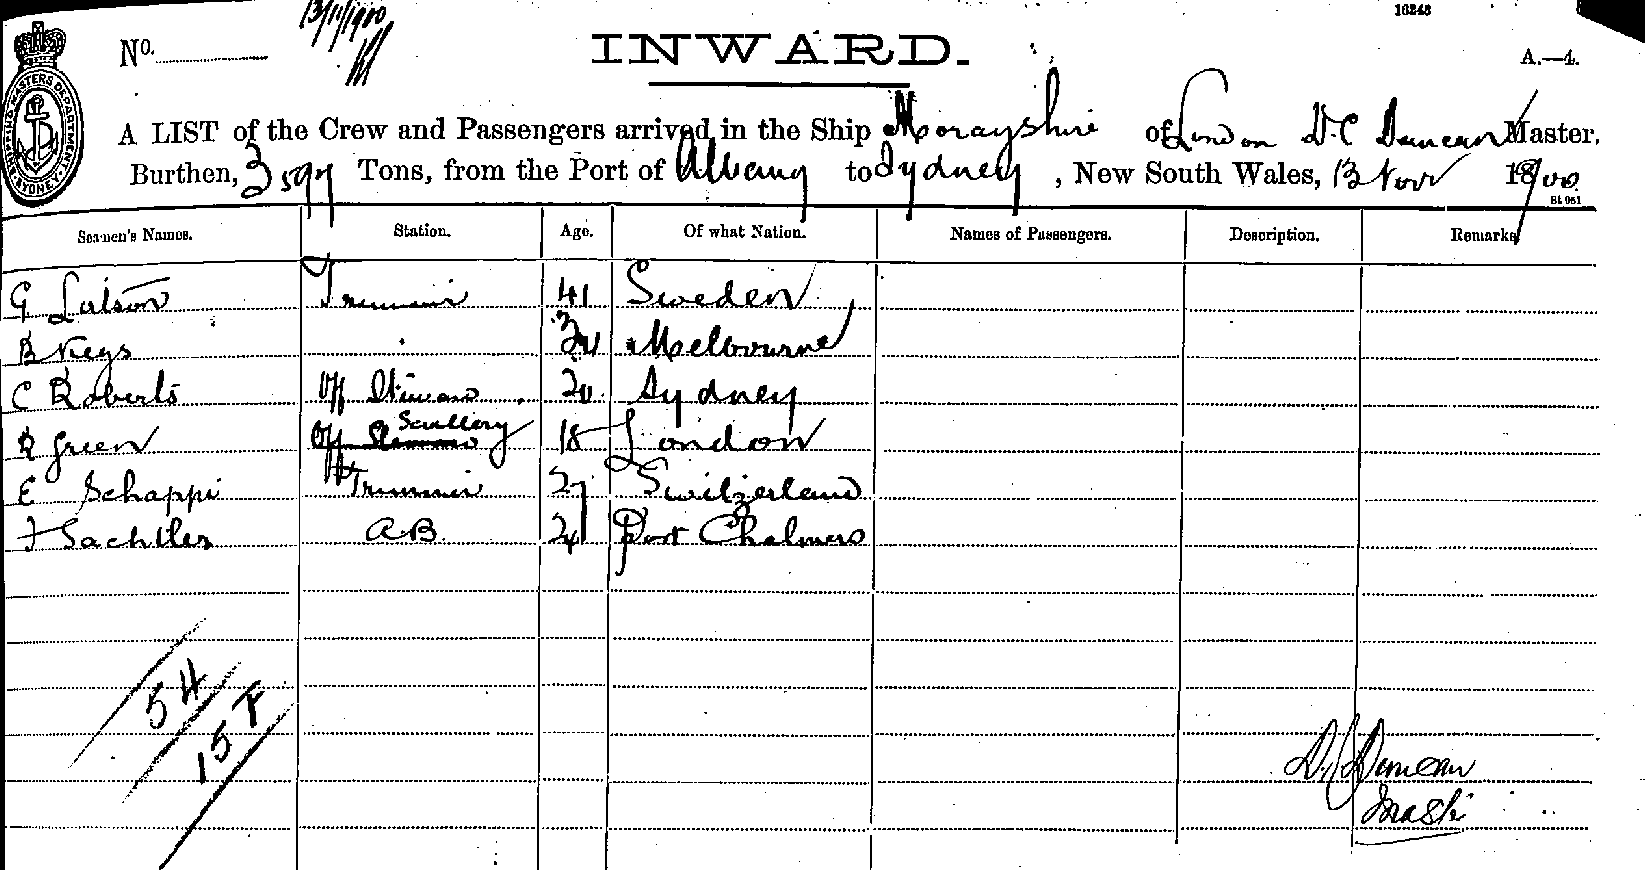 16243
13/11/1900
No.
INWARD.
A.—4.
SHIPPING MASTERS DEPARTMENT. SYDNEY
A LIST of the Crew and Passengers arrived in the Ship Morayshire of London D.C Duncan Master,
Burthen, Tons, from the Port of Albany to Sydney, New South Wales, 13 Novr 1900
Seamen's Names. Station. Age. Of what Nation. Names of Passengers. Description. Remarks
G Trimmer 41 Sweden
B Keys Melbourne
C Roberts Off Steward 20 Sydney
R Green Scullery 18 London
E Schappi Trimmer 27 Switzerland
F Sachtler A.B 24 Port Chalmers
54
15 F
D.C Duncan
Mastr